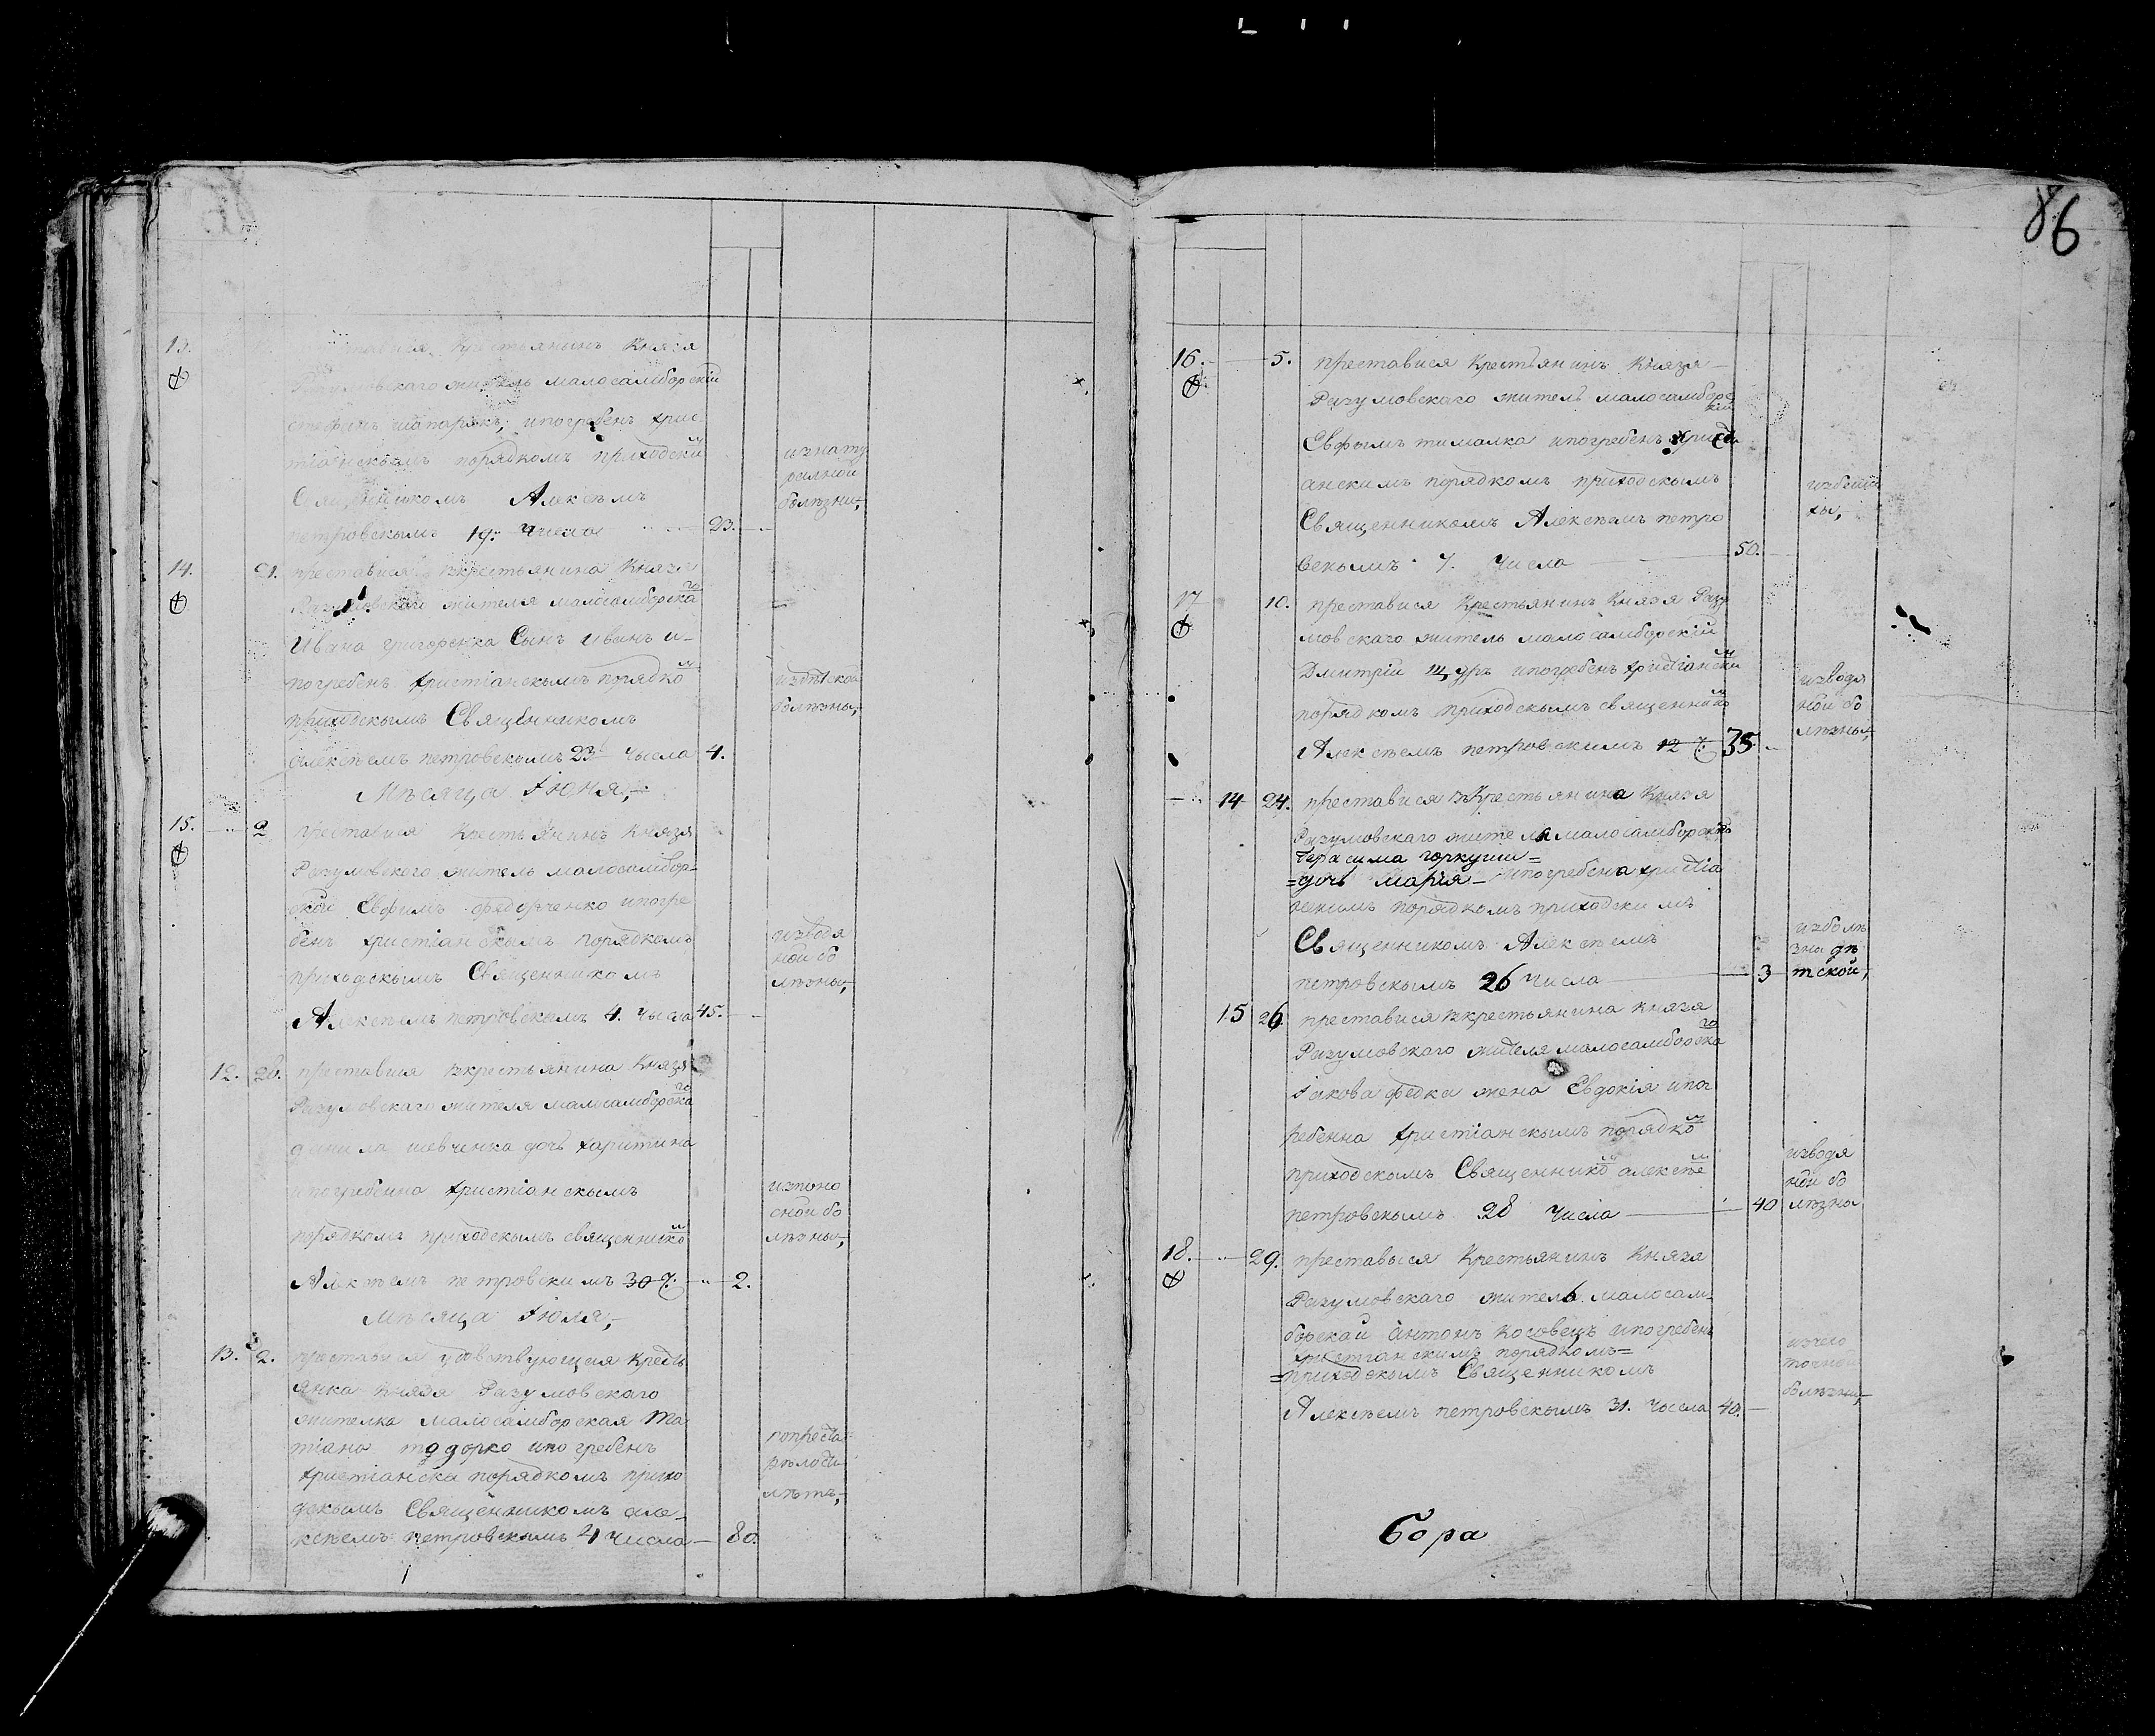 86
13. крестьянинъ Князя
Разумовскаго житель малосамборскій
стефанъ шапарякъ, ипогребенъ хрис
тіанскымъ порядкомъ приходски м
Священникомъ Алексѣемъ
петровскымъ 19. Числа 23.
изнату
ралной
болѣзни,
14. 21. преставися вкрестьянина Князя
Разумовскаго жителя малосамборска го
Ивана григоренка Сынъ иванъ и-
погребенъ христіанскымъ порядко м
приходскымъ Священникомъ
алексѣемъ петровскымъ 23 числа 4.
издѣтской
болѣзны,
Мѣсяца Іюня,
15. 2 преставися Крестьянинъ Князя
Разумовского житель малосамбор-
ской Евфимъ федорченко ипогре
бенъ христіанскымъ порядкомъ
приходскымъ Священникомъ
Алексѣемъ петровскомъ 4. числа 45.
изводя
ной бо
лѣзны,
12. 28. преставися вкрестьянина Князя
Разумовскаго жителя малосамборска го
данила шевченка дочь харитина
ипогребенна христіанскымъ
порядкомъ приходскымъ священнико м
Алексѣемъ петровскимъ 30 ч. 2.
изпоно
сной бо
лѣзны,
Мѣсяца Іюля,
13. 2. преставися удовствующая крестъ
янка Князя Разумовскаго
жителка малосамборская Та
тіана тодорко ипогребенъ
христіанска порядкомъ прихо
дскымъ Священникомъ але-
ксѣемъ петровскымъ 4 числа 80.
лѣтъ,
16. 5. преставися Крестьянинъ Князя
Разумовскаго житель малосамборс
кій
Евфымъ тималка ипогребенъ христи
анскимъ порядкомъ приходскымъ
Священникомъ Алексѣемъ петро
вскымъ 7. числа 50.
17 10. преставися Крестьянинъ Князя Разу
мовскаго житель малосамборскій
Дмитрій щуръ ипогребенъ христіански м
порядкомъ приходскымъ священнико м
Алексѣемъ петровскимъ 12 ч. 35
изводя
ной бо
лѣзны,
14 24. преставися вКрестьянина Князя
Разумовскаго жителя малосамборска го
Герасима горкуши=
=дочь Марія- ипогребена христіа
нскимъ порядкомъ приходскимъ
Священникомъ Алексѣемъ
петровскымъ 26 числа 3
изболѣ
зна дѣ
тской,
15 26. преставися вкрестьянина Князя
Разумовскаго жителя малосамборска го
Іакова федка жена Евдокія ипог
ребенна христіанскымъ порядко м
приходскомъ Священнико м алексѣе м
петровскымъ 28 числа 40
изводя
ной бо
лѣзны
18. 29. преставыся Крестьянинъ Князя
Разумовскаго житель малосам-
борскай антонъ косовецъ ипогребенъ
христіанскимъ порядкомъ=
=приходскымъ Священникомъ
Алексѣемъ петровскымъ 31. числа 40.
болѣзни,
бора